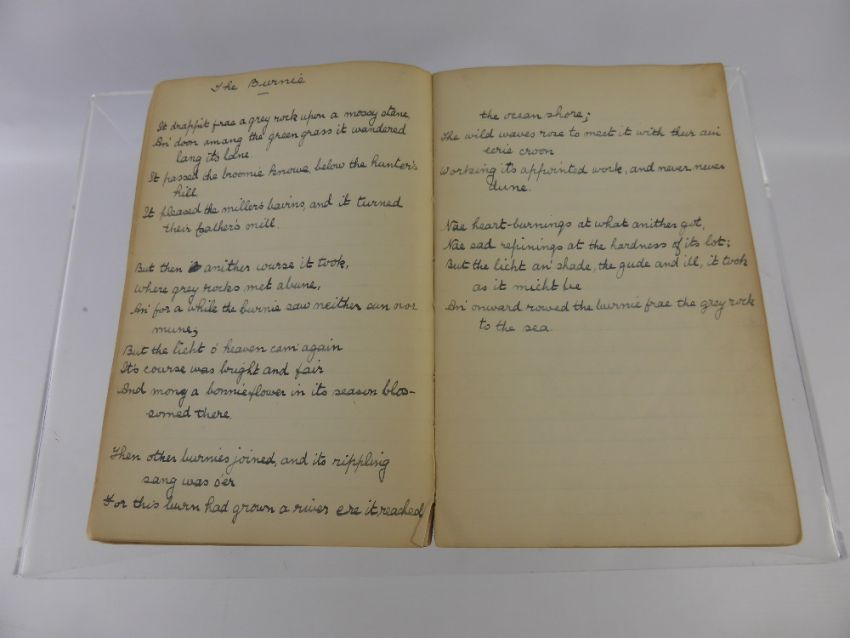 The Burnie
It drappit frae a grey rock upon a mossy stane,
An' doon amang the green grass it wandered
lang its lane.
It passed the broomie knowe, below the hunter's
hill
It pleased the miller's bairns, and it turned
their father's mill.
But then anither course it took,
Where grey rocks met abune,
An' for a while the burnie saw neither sun nor
mune;
But the licht o' heaven cam' again
It's course was bright and fair
And mony a bonnie flower in its season blos-
somed there.
Then other burnies joined, and its rippling
sang was o'er
For this burn had grown a river ere it reached
the ocean shore;
The wild waves rose to meet it with their ain
eerie croon
Working its appointed work, and never, never
dune.
Nae heart-burnings at what anither got,
Nae sad repinings at the hardness of its lot;
But the licht an' shade, the gude and ill, it took
as it micht be
An' onward rowed the burnie frae the grey rock
to the sea.